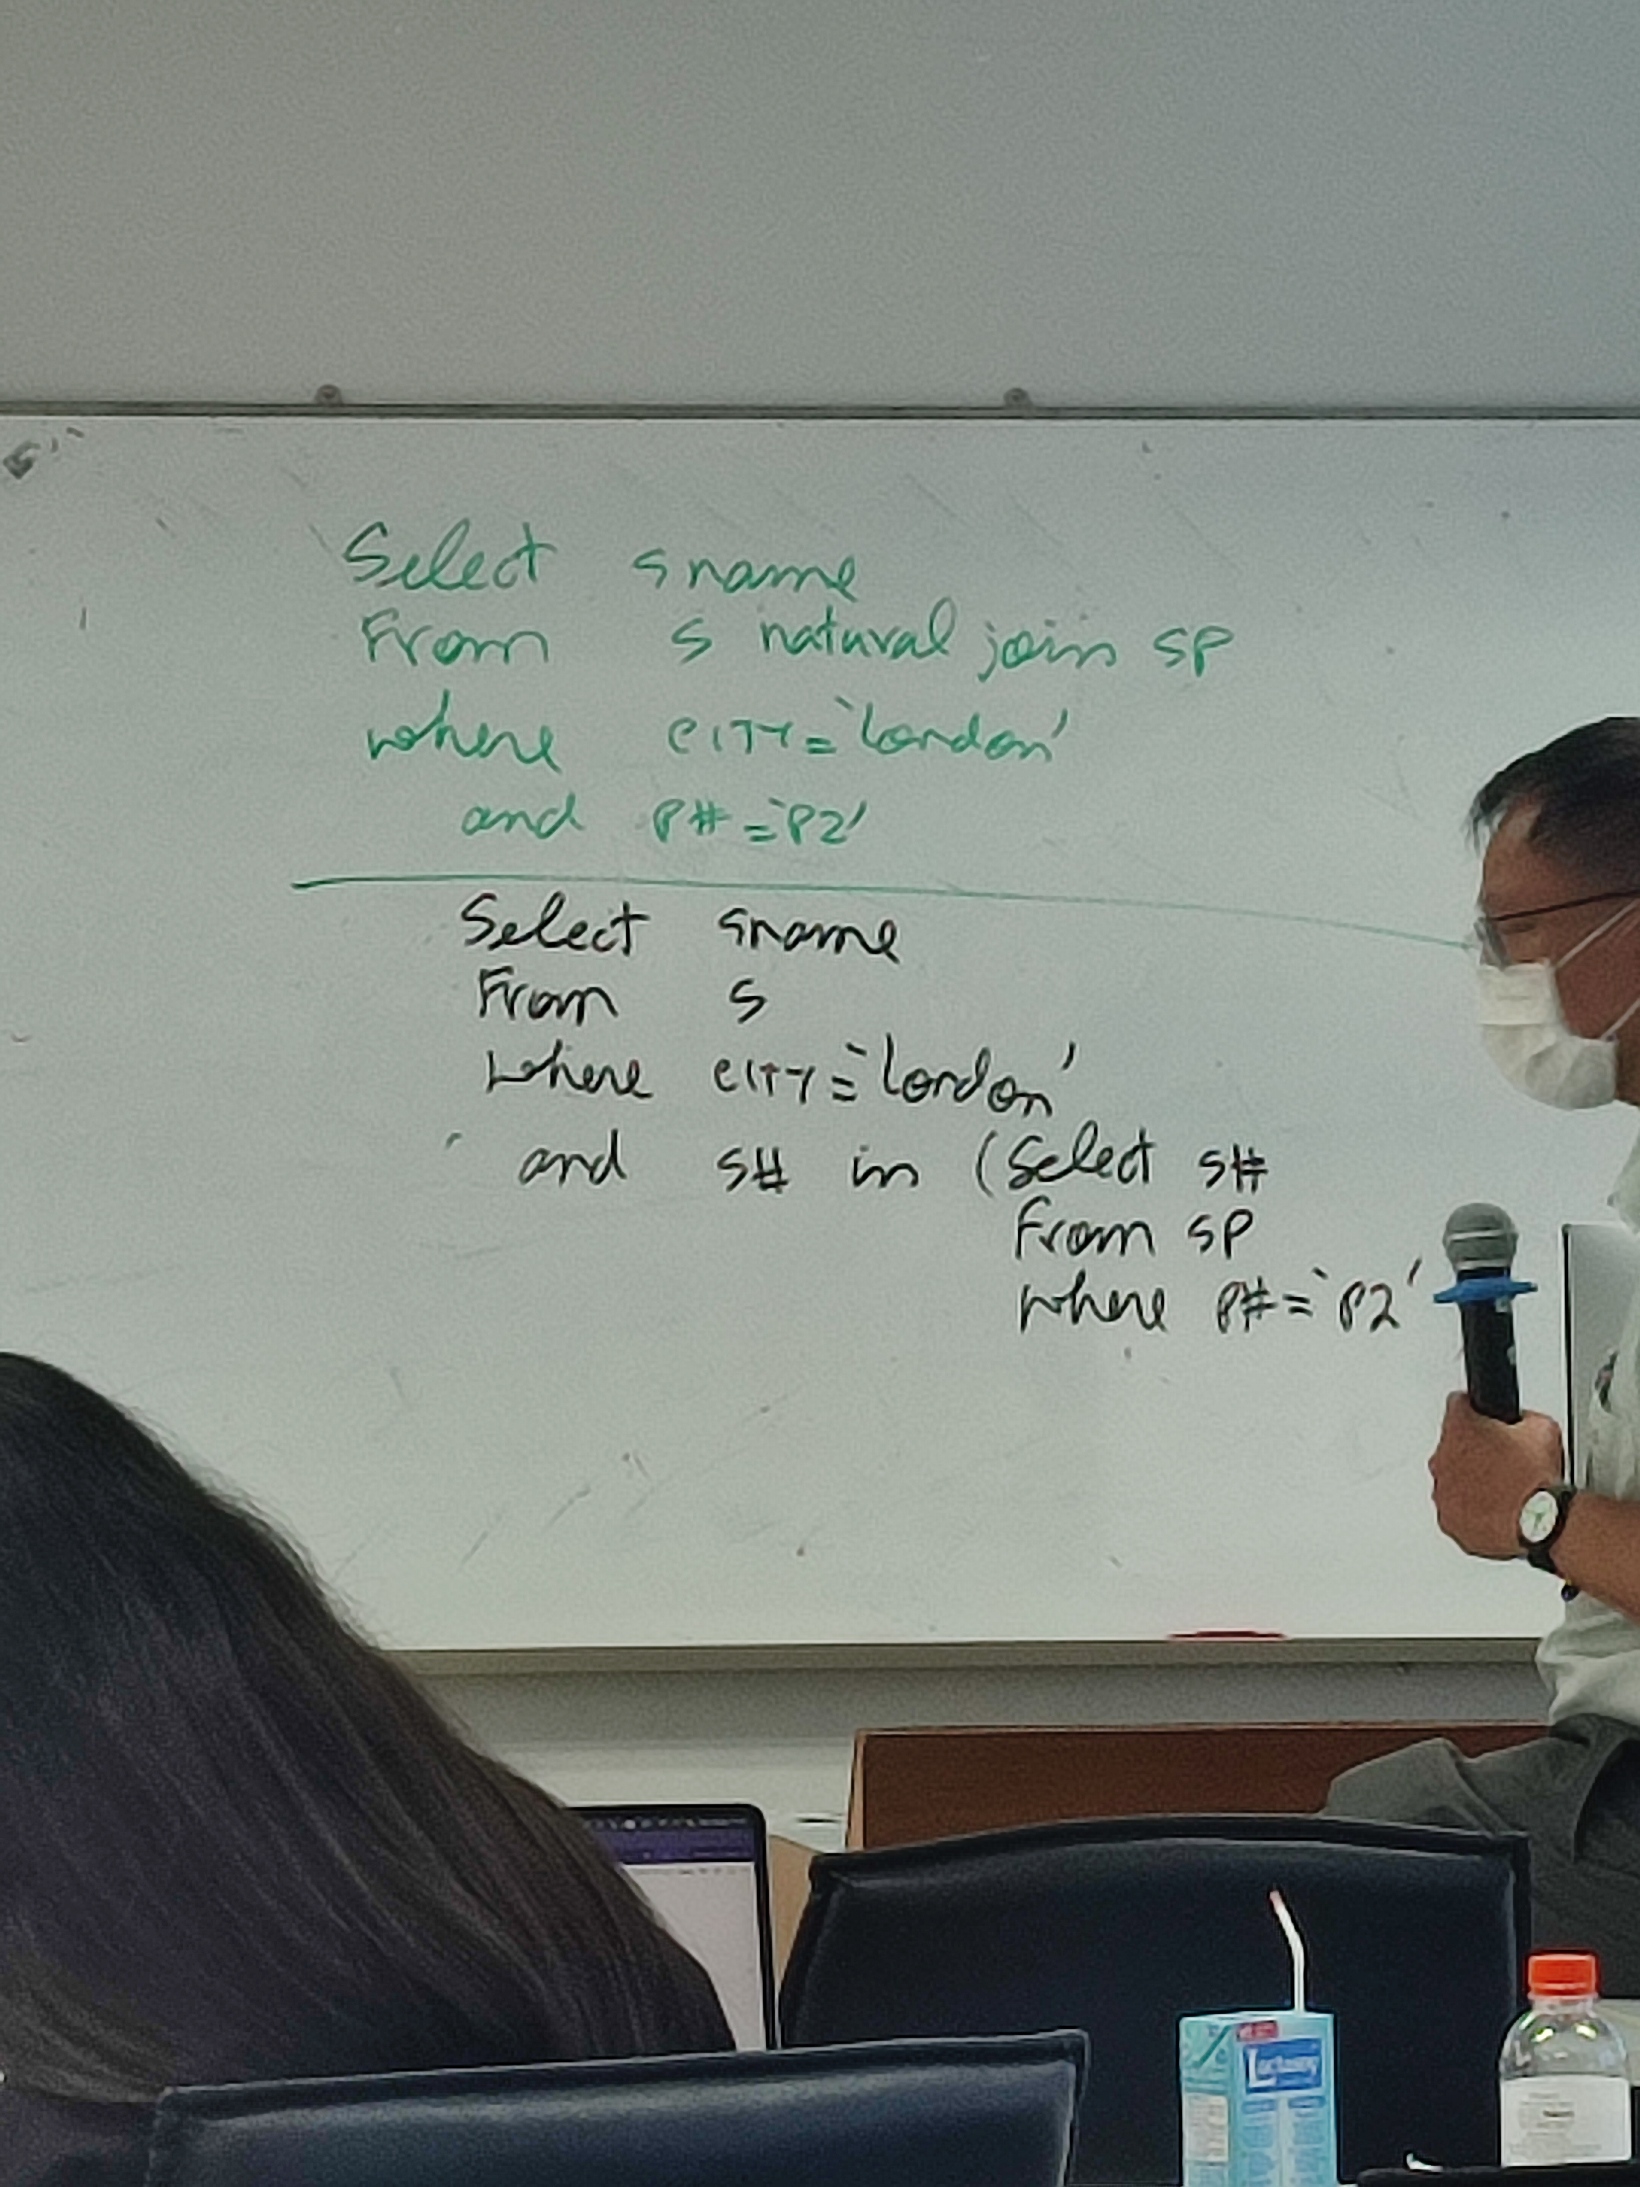 Select sname
From S natural join SP
where CITY=`London'
and P#=`P2'
Select sname
From S
where CITY=`London'
and S# in (Select S#
From SP
where P#=`P2'
Lactasoy